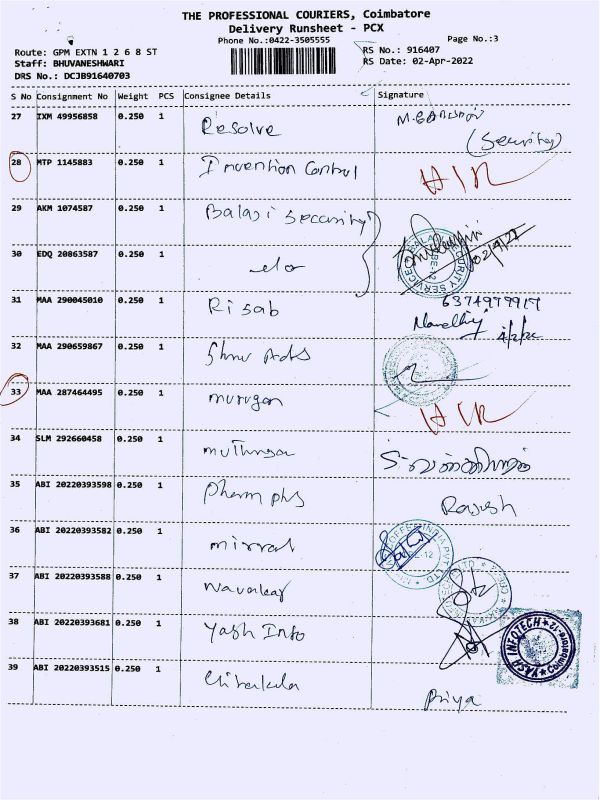 THE PROFESSIONAL COURIERS, Coimbatore
Delivery Runsheet - PCX
Phone No.:0422-3505555 Page No.:3
Route: GPM EXTN 1 2 6 8 ST RS No.: 916407
Staff: BHUVANESHWARI RS Date: 02-Apr-2022
DRS No.: DCJB91640703
S No Consignment No Weight PCS Consignee Details Signature
27 IXM 49956858 0.250 1 Resolve
(Security)
28 MTP 1145883 0.250 1 Invention Control
29 AKM 1074587 0.250 1 Balaji Security
30 EDQ 20863587 0.250 1
31 MAA 290045010 0.250 1 Risab 6374979917
32 MAA 290659867 0.250 1
33 MAA 287464495 0.250 1 murugan
34 SLM 292660458 0.250 1
35 ABI 20220393598 0.250 1 Rajesh
36 ABI 20220393582 0.250 1
37 ABI 20220393588 0.250 1
38 ABI 20220393681 0.250 1 Yash Info
YASH INFOTECH
39 ABI 20220393515 0.250 1 Priya